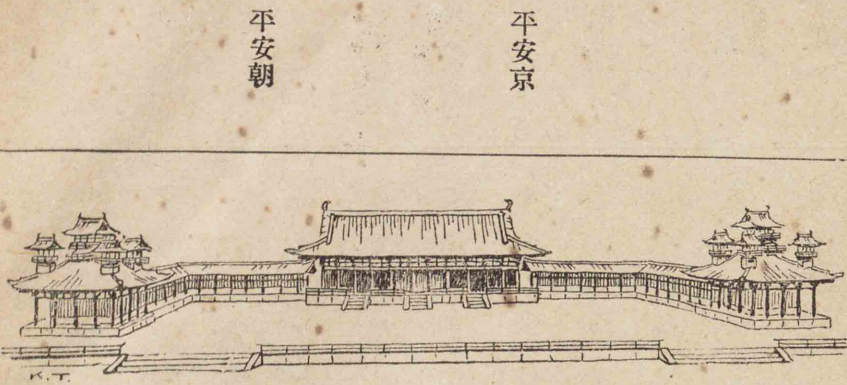 平安京
平安朝
K.T.